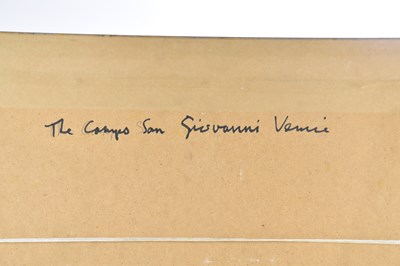 The Campo San Giovanni Venice